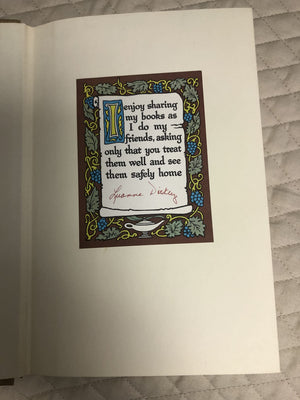 I enjoy sharing
my books as
I do my
friends, asking
only that you treat
them well and see
them safely home
Luanne